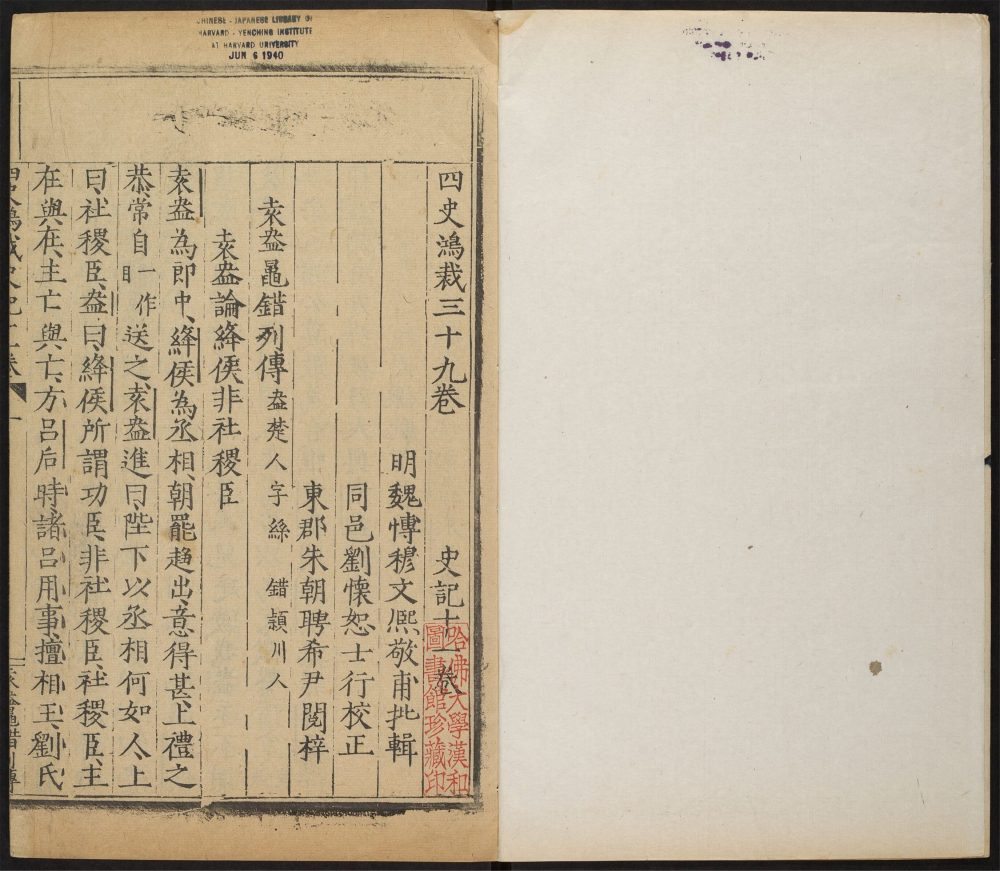 CHINESE - JAPANESE LIBRARY OF
HARVARD - YENCHING INSTITUTE
AT HARVARD UNIVERSITY
JUN 6 1940
四史鴻裁三十九卷 史記十一卷
哈佛大學漢和
圖書館珍藏印
明魏愽穆文熈敬甫批輯
同邑劉懷恕士行校正
東郡朱朝聘希尹閱梓
袁盎鼂錯列傳 盎楚人字絲 錯頴川人
袁盎論絳侯非社稷臣
袁盎為郎中、絳侯為丞相、朝罷趋出、意得甚、上禮之
恭、常自一作目送之、袁盎進曰、陛下以丞相何如人、上
曰、社稷臣、盎曰、絳侯所謂功臣、非社稷臣、社稷臣、主
在與在、主亡與亡、方呂后時、諸呂用事、擅相王、劉氏
四史鴻裁史記十一卷 一 袁盎鼂錯列傳